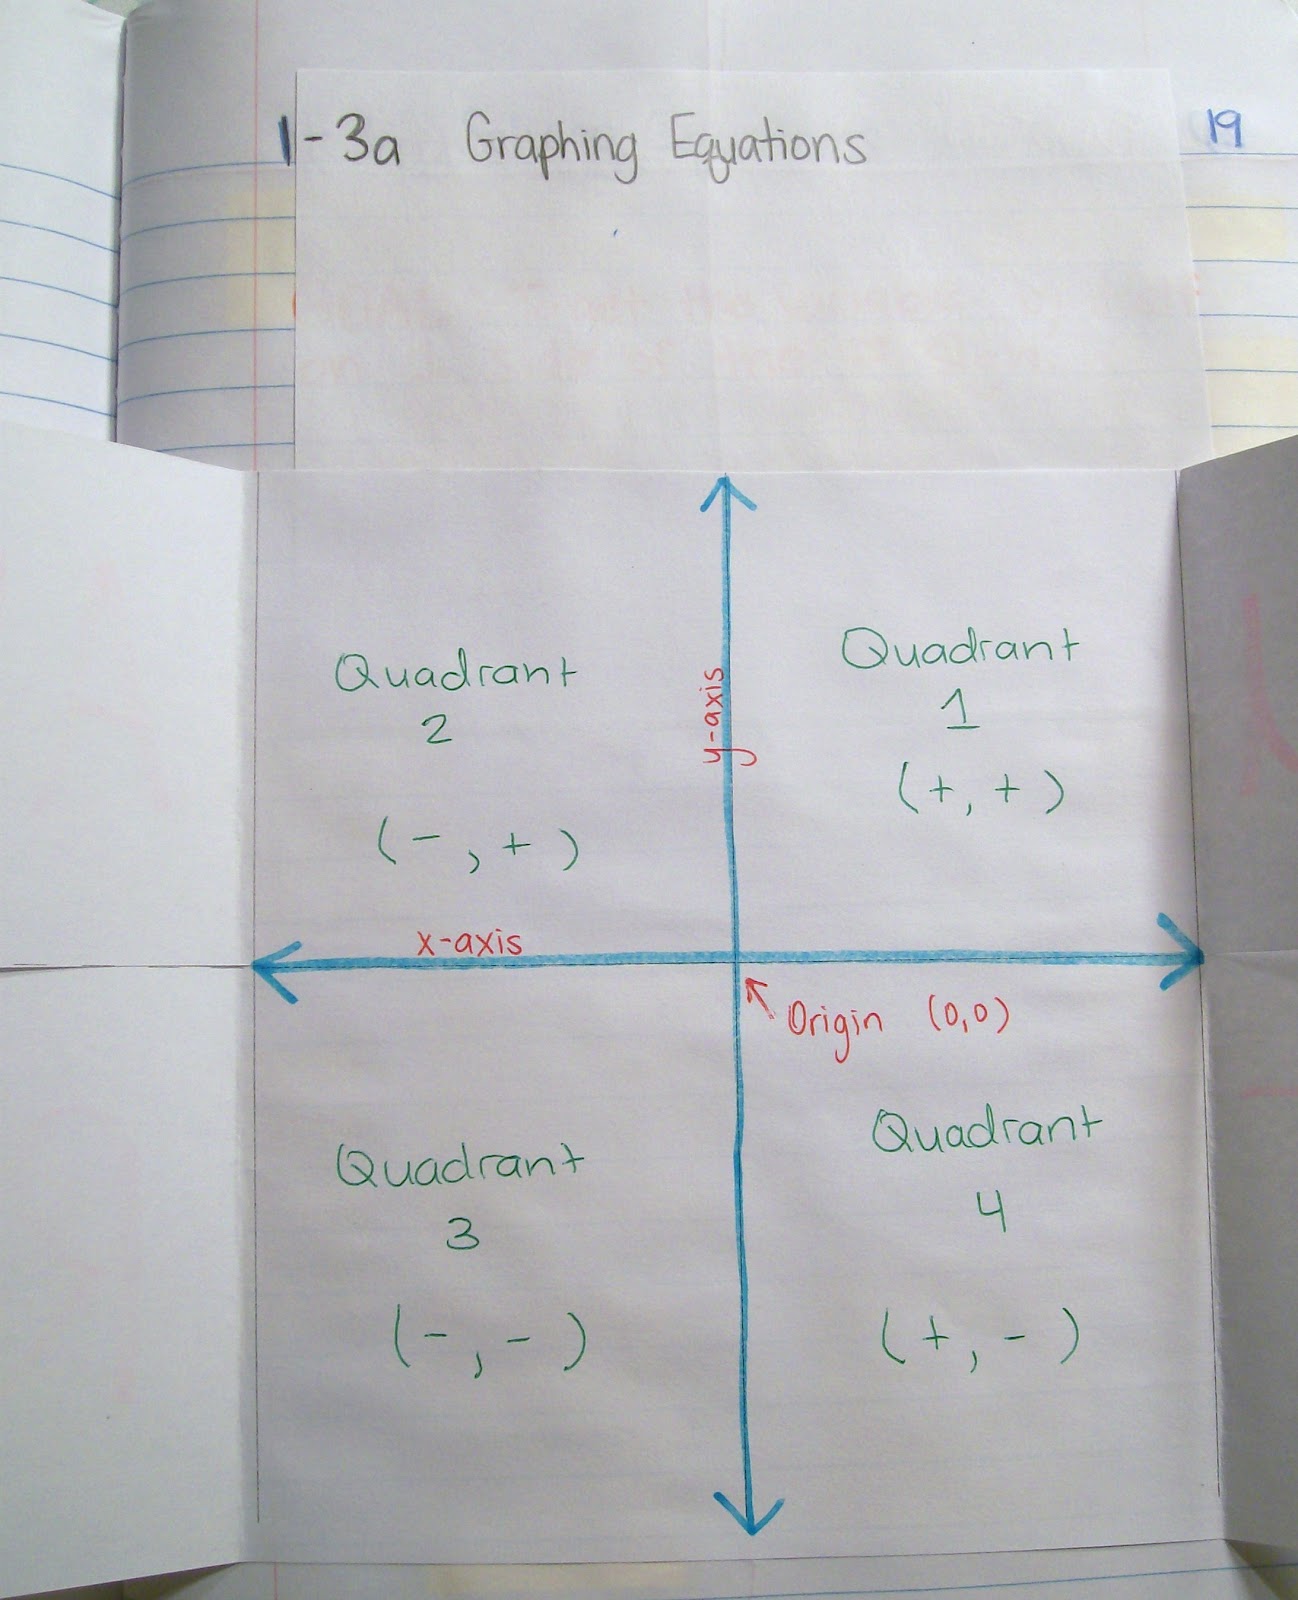 1-3a Graphing Equations
19
Quadrant
2
(-, +)
Quadrant
1
(+, +)
y-axis
x-axis
Origin (0,0)
Quadrant
3
(-, -)
Quadrant
4
(+, -)